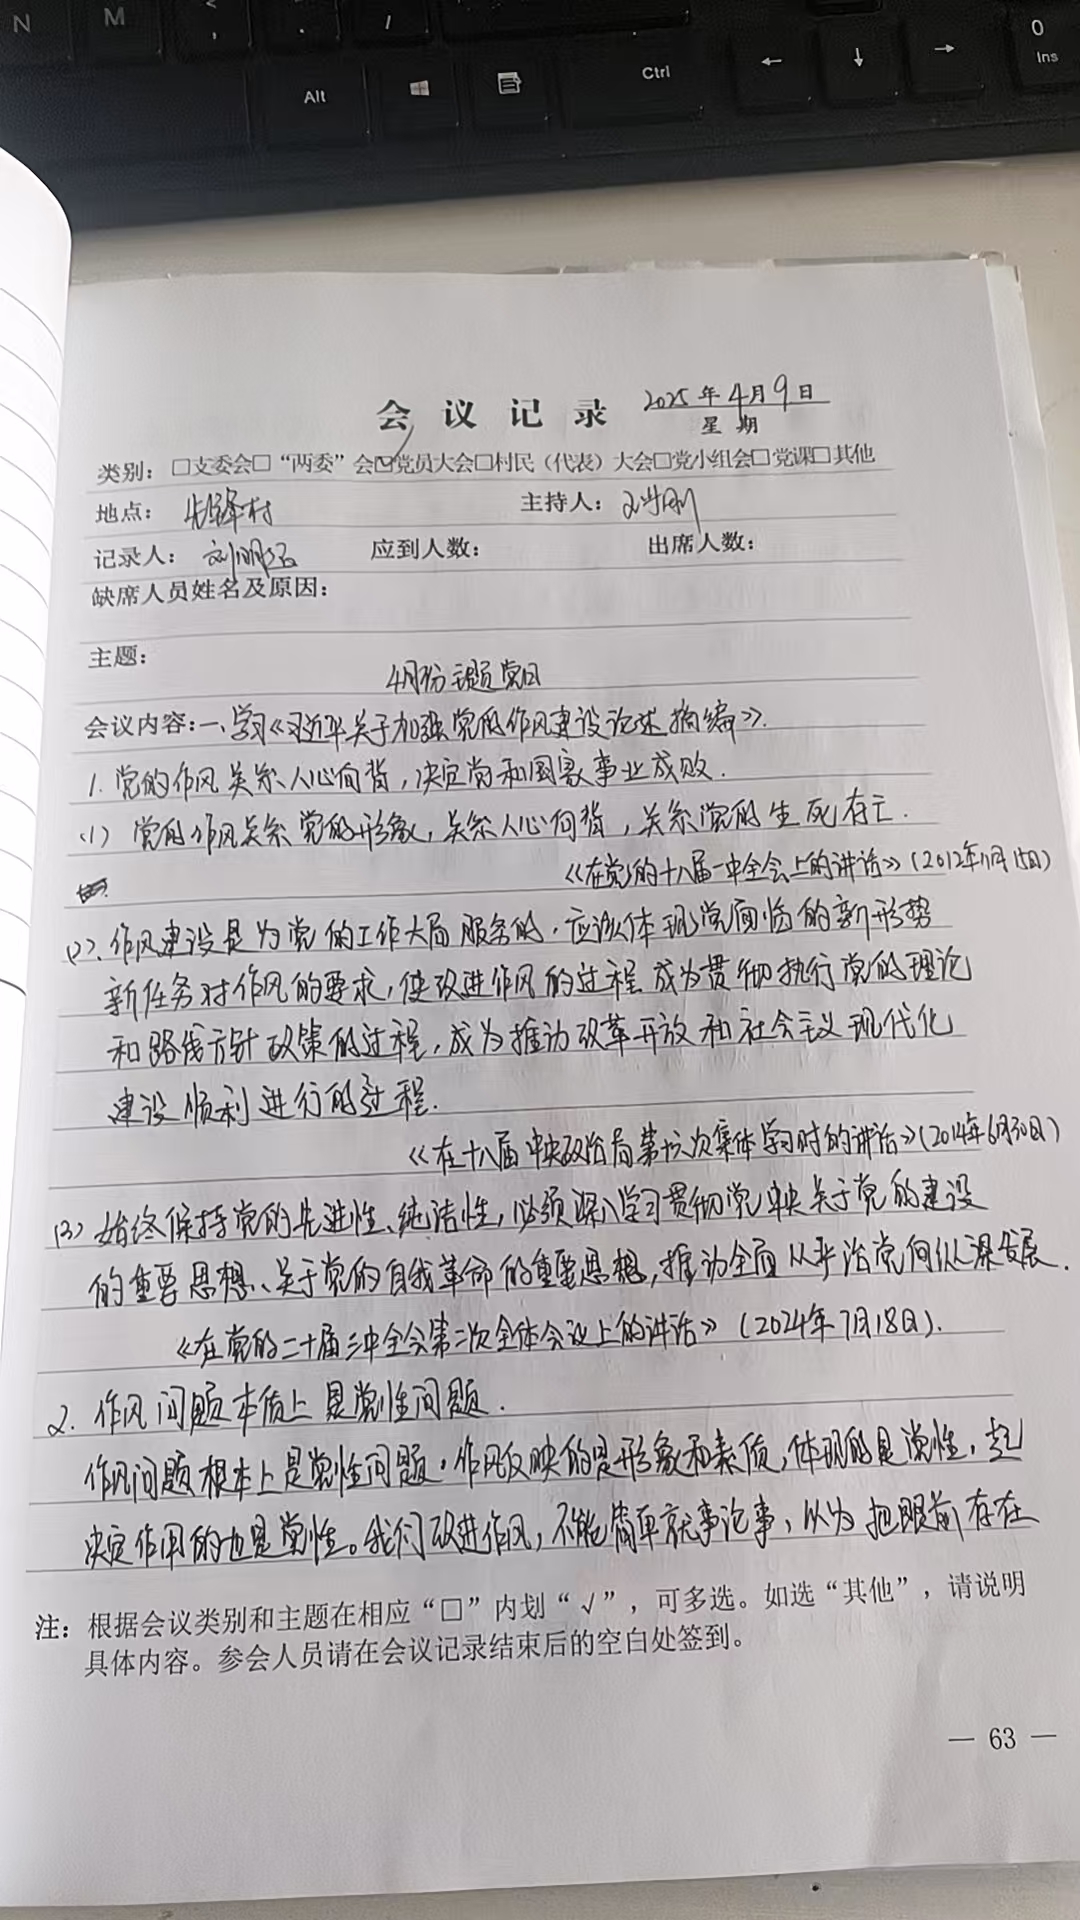 N M < , . /
Alt Ctrl ← ↓ → 0 Ins
会议记录 2025年4月9日
星期
类别：□支委会□“两委”会☑党员大会□村民（代表）大会□党小组会□党课□其他
地点：先锋村 主持人：
记录人：刘明 应到人数： 出席人数：
缺席人员姓名及原因：
主题：
4月份主题党日
会议内容：一、学习《习近平关于加强党的作风建设论述摘编》.
1. 党的作风关系人心向背，决定党和国家事业成败.
(1) 党的作风关系党的形象，关系人心向背，关系党的生死存亡.
《在党的十八届一中全会上的讲话》(2012年11月15日)
(2). 作风建设是为党的工作大局服务的，应该体现党面临的新形势
新任务对作风的要求，使改进作风的过程成为贯彻执行党的理论
和路线方针政策的过程，成为推动改革开放和社会主义现代化
建设顺利进行的过程.
《在十八届中央政治局第十六次集体学习时的讲话》(2014年6月30日)
(3) 始终保持党的先进性、纯洁性，必须深入学习贯彻党中央关于党的建设
的重要思想、关于党的自我革命的重要思想，推动全面从严治党向纵深发展.
《在党的二十届三中全会第二次全体会议上的讲话》(2024年7月18日).
2. 作风问题本质上是党性问题.
作风问题根本上是党性问题，作风反映的是形象和素质，体现的是党性，起
决定作用的也是党性。我们改进作风，不能简单就事论事，以为把眼前存在
注：根据会议类别和主题在相应“□”内划“√”，可多选。如选“其他”，请说明
具体内容。参会人员请在会议记录结束后的空白处签到。
— 63 —